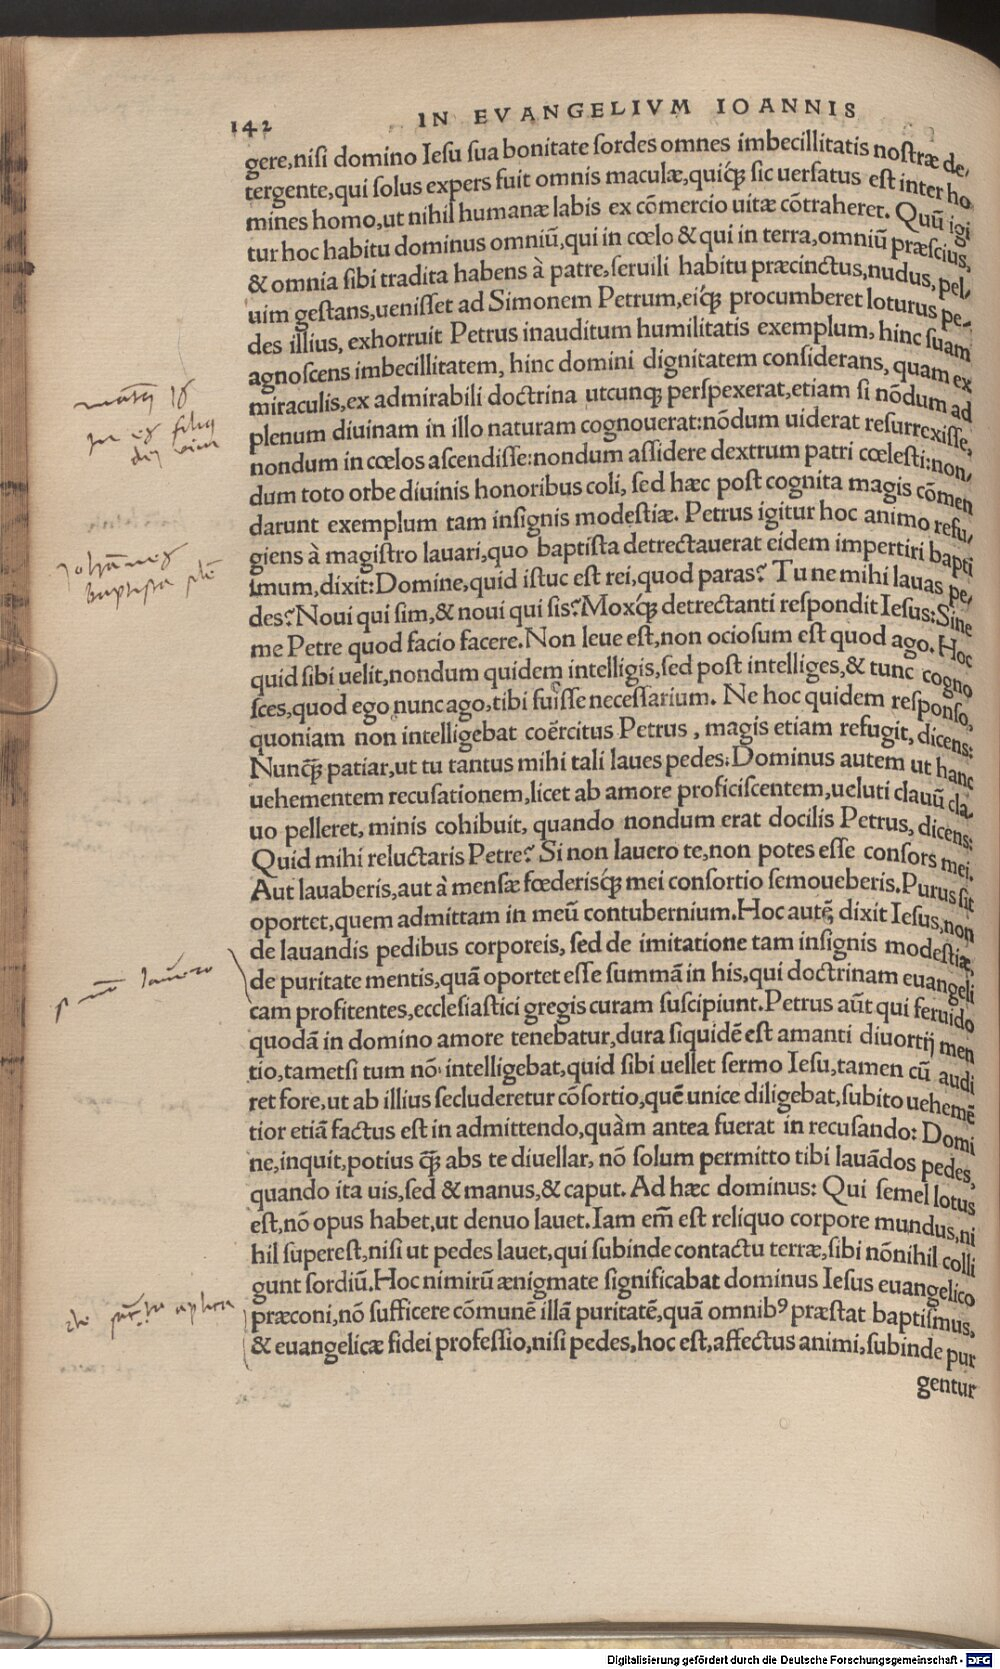 142 IN EVANGELIVM IOANNIS
gere,nisi domino Iesu sua bonitate sordes omnes imbecillitatis nostræ de/
tergente,qui solus expers fuit omnis maculæ,quiqꝫ sic uersatus est inter ho
mines homo,ut nihil humanæ labis ex cõmercio uitæ cõtraheret. Quũ igi
tur hoc habitu dominus omniũ,qui in cœlo & qui in terra,omniũ præscius,
& omnia sibi tradita habens à patre,seruili habitu præcinctus,nudus, pel/
uim gestans,uenisset ad Simonem Petrum,eiqꝫ procumberet loturus pe/
des illius, exhorruit Petrus inauditum humilitatis exemplum, hinc suam
agnoscens imbecillitatem, hinc domini dignitatem considerans, quam ex
miraculis,ex admirabili doctrina utcunqꝫ perspexerat,etiam si nõdum ad
plenum diuinam in illo naturam cognouerat:nõdum uiderat resurrexisse,
nondum in cœlos ascendisse:nondum assidere dextrum patri cœlesti:non/
dum toto orbe diuinis honoribus coli, sed hæc post cognita magis cõmen
darunt exemplum tam insignis modestiæ. Petrus igitur hoc animo refu/
giens à magistro lauari,quo baptista detrectauerat eidem impertiri bapti
smum,dixit:Domine,quid istuc est rei,quod paras? Tu ne mihi lauas pe/
des? Noui qui sim,& noui qui sis? Moxqꝫ detrectanti respondit Iesus:Sine
me Petre quod facio facere. Non leue est,non ociosum est quod ago. Hoc
quid sibi uelit,nondum quidem intelligis,sed post intelliges,& tunc cogno
sces,quod ego nunc ago,tibi fuisse necessarium. Ne hoc quidem responso,
quoniam non intelligebat coërcitus Petrus, magis etiam refugit, dicens:
Nunqꝫ̃ patiar,ut tu tantus mihi tali laues pedes. Dominus autem ut hanc
uehementem recusationem,licet ab amore proficiscentem,ueluti clauũ cla/
uo pelleret, minis cohibuit, quando nondum erat docilis Petrus, dicens:
Quid mihi reluctaris Petre? Si non lauero te,non potes esse consors mei.
Aut lauaberis,aut à mensæ fœderisqꝫ mei consortio semoueberis. Purus sit
oportet,quem admittam in meũ contubernium. Hoc autẽ dixit Iesus,non
de lauandis pedibus corporeis, sed de imitatione tam insignis modestiæ,
de puritate mentis,quã oportet esse summã in his,qui doctrinam euangeli
cam profitentes,ecclesiastici gregis curam suscipiunt. Petrus aũt qui feruido
quodã in domino amore tenebatur,dura siquidẽ est amanti diuortij men
tio,tametsi tum nõ intelligebat,quid sibi uellet sermo Iesu,tamen cũ audi
ret fore,ut ab illius secluderetur cõsortio,quẽ unice diligebat,subito uehemẽ
tior etiã factus est in admittendo,quàm antea fuerat in recusando: Domi
ne,inquit,potius qꝫ̃ abs te diuellar, nõ solum permitto tibi lauãdos pedes,
quando ita uis,sed & manus,& caput. Ad hæc dominus: Qui semel lotus
est,nõ opus habet,ut denuo lauet. Iam em̃ est reliquo corpore mundus,ni
hil superest,nisi ut pedes lauet,qui subinde contactu terræ,sibi nõnihil colli
gunt sordiũ. Hoc nimirũ ænigmate significabat dominus Iesus euangelico
præconi,nõ sufficere cõmunẽ illã puritatẽ,quã omnibꝰ præstat baptismus,
& euangelicæ fidei professio,nisi pedes,hoc est,affectus animi,subinde pur
gentur
Johannes
Baptista
Digitalisierung gefördert durch die Deutsche Forschungsgemeinschaft - DFG